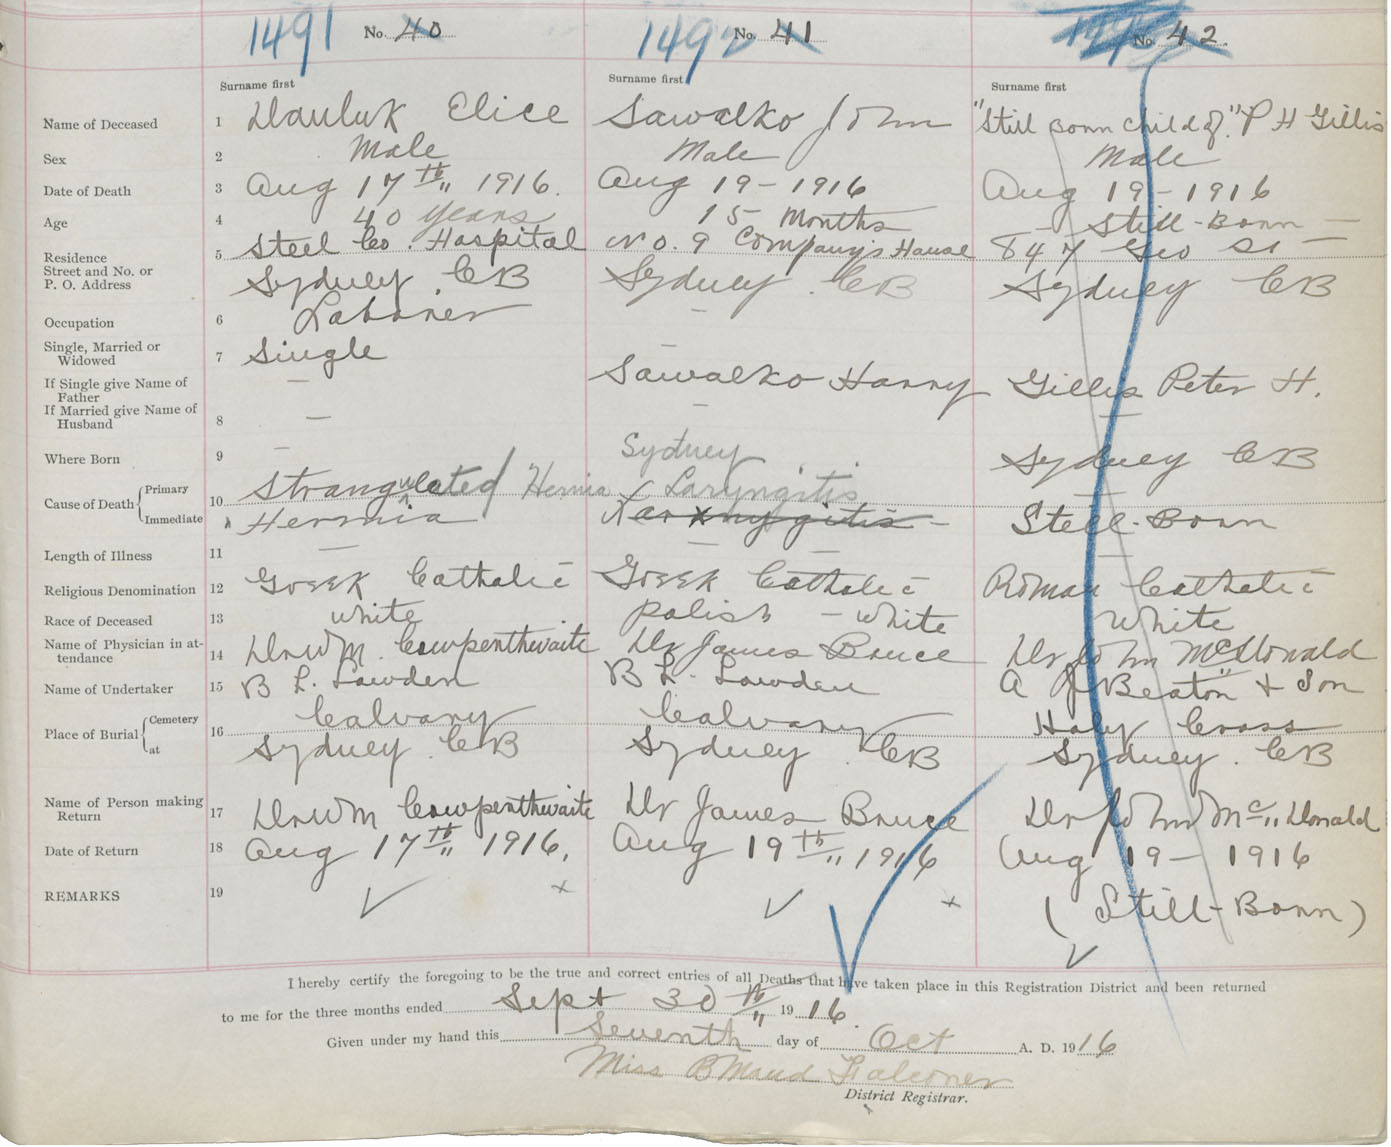 1491 No. 40 1492 No. 41 No. 42
Surname first Surname first Surname first
Name of Deceased 1 Dauluk Elice Sawalko John "Still born child of" P H Gillis
Sex 2 Male Male Male
Date of Death 3 Aug 17th 1916. Aug 19 - 1916 Aug 19 - 1916
Age 4 40 years 15 Months - Still-Born -
Residence Street and No. or P. O. Address 5 Steel Co. Hospital No. 9 Company's House 847 Geo St -
Sydney. CB Sydney. CB Sydney CB
Occupation 6 Labourer -
Single, Married or Widowed 7 Single -
If Single give Name of Father - Sawalko Harry Gillis Peter H.
If Married give Name of Husband 8 - - -
Where Born 9 - Sydney Sydney CB
Cause of Death { Primary 10 Strangulated Hernia Laryngitis -
Immediate Hernia Still-Born
Length of Illness 11 - - - -
Religious Denomination 12 Greek Catholic Greek Catholic Roman Catholic
Race of Deceased 13 white polish - white White
Name of Physician in attendance 14 Dr Wm. Cowpenthwaite Dr James Bruce Dr John McDonald
Name of Undertaker 15 B L. Lowden B L. Lowden A J Beaton & Son
Place of Burial { Cemetery 16 Calvary Calvary Holy Cross
at Sydney. CB Sydney. CB Sydney. CB
Name of Person making Return 17 Dr Wm Cowpenthwaite Dr James Bruce Dr John Mc Donald
Date of Return 18 Aug 17th 1916. Aug 19th 1916 Aug 19 - 1916
REMARKS 19 ✓ x ✓ x (Still-Born)
✓
I hereby certify the foregoing to be the true and correct entries of all Deaths that have taken place in this Registration District and been returned
to me for the three months ended Sept 30th 1916.
Given under my hand this Seventh day of Oct A. D. 1916
Miss B Maud Falconer
District Registrar.